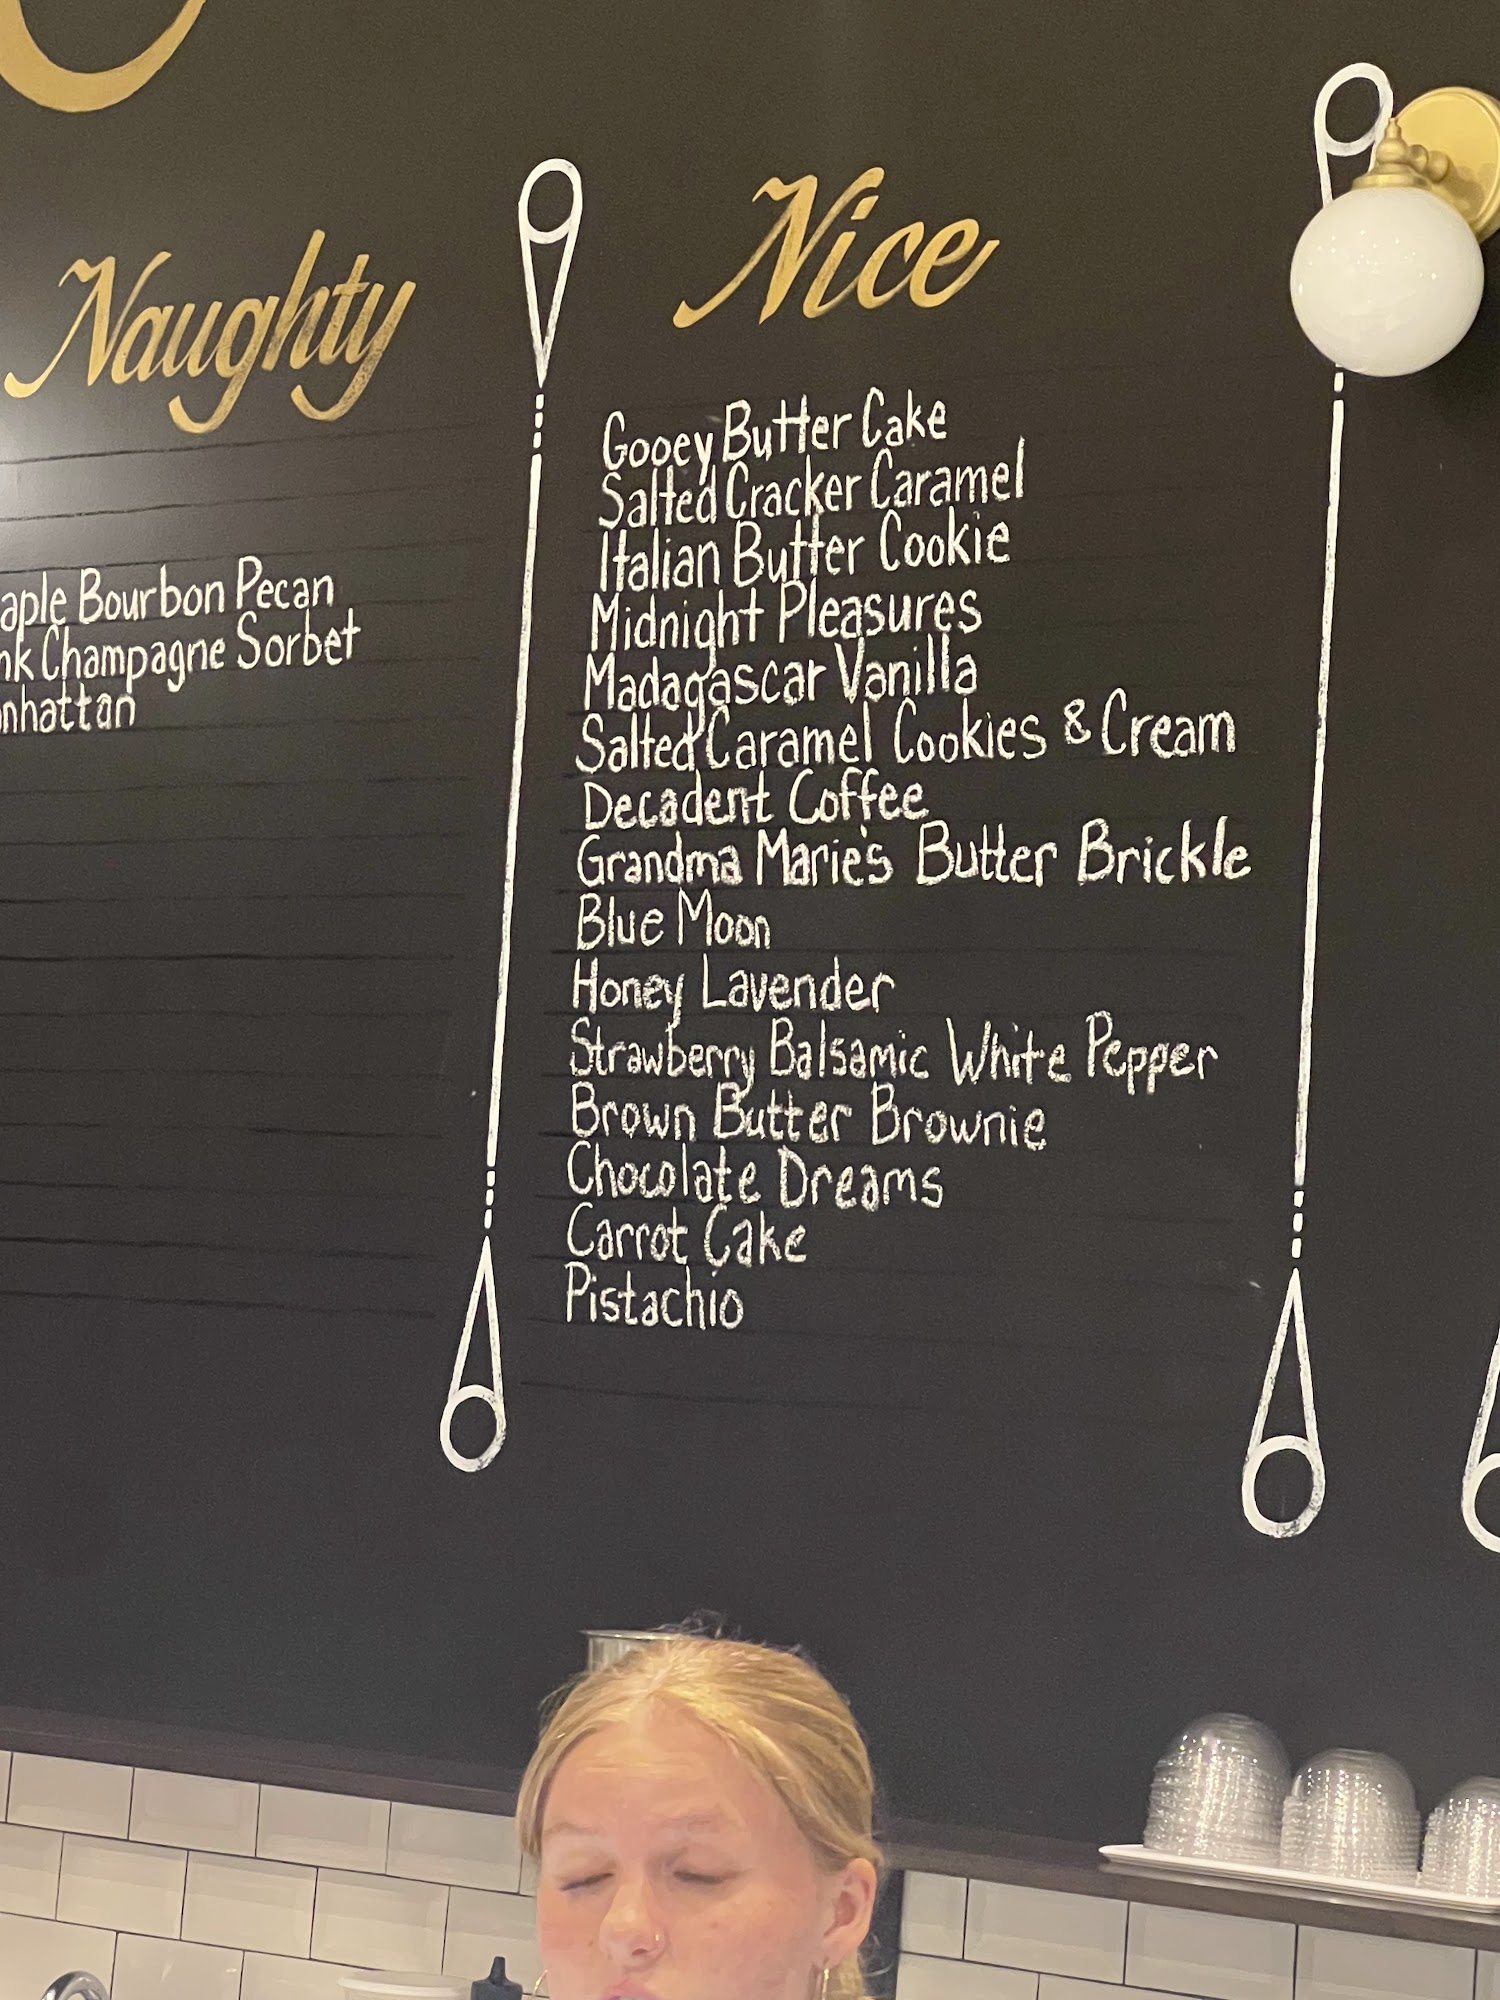 Naughty
aple Bourbon Pecan
nk Champagne Sorbet
nhattan
Nice
Gooey Butter Cake
Salted Cracker Caramel
Italian Butter Cookie
Midnight Pleasures
Madagascar Vanilla
Salted Caramel Cookies & Cream
Decadent Coffee
Grandma Marie's Butter Brickle
Blue Moon
Honey Lavender
Strawberry Balsamic White Pepper
Brown Butter Brownie
Chocolate Dreams
Carrot Cake
Pistachio